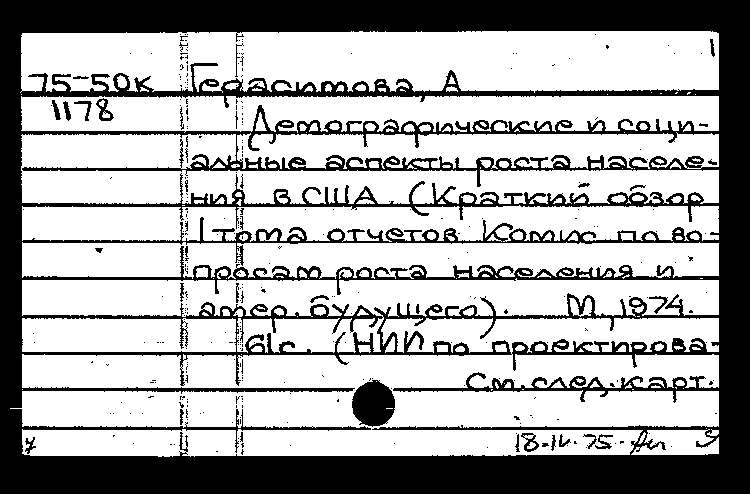 1
75-50к Герасимова, А
1178
Демографические и соци-
альные аспекты роста населе-
ния в США. (Краткий обзор
1 тома отчетов Комис по во-
просам роста населения и
амер. будущего). М., 1974.
61с. (НИИ по проектирова-
См. след. карт.
18-IV-75-